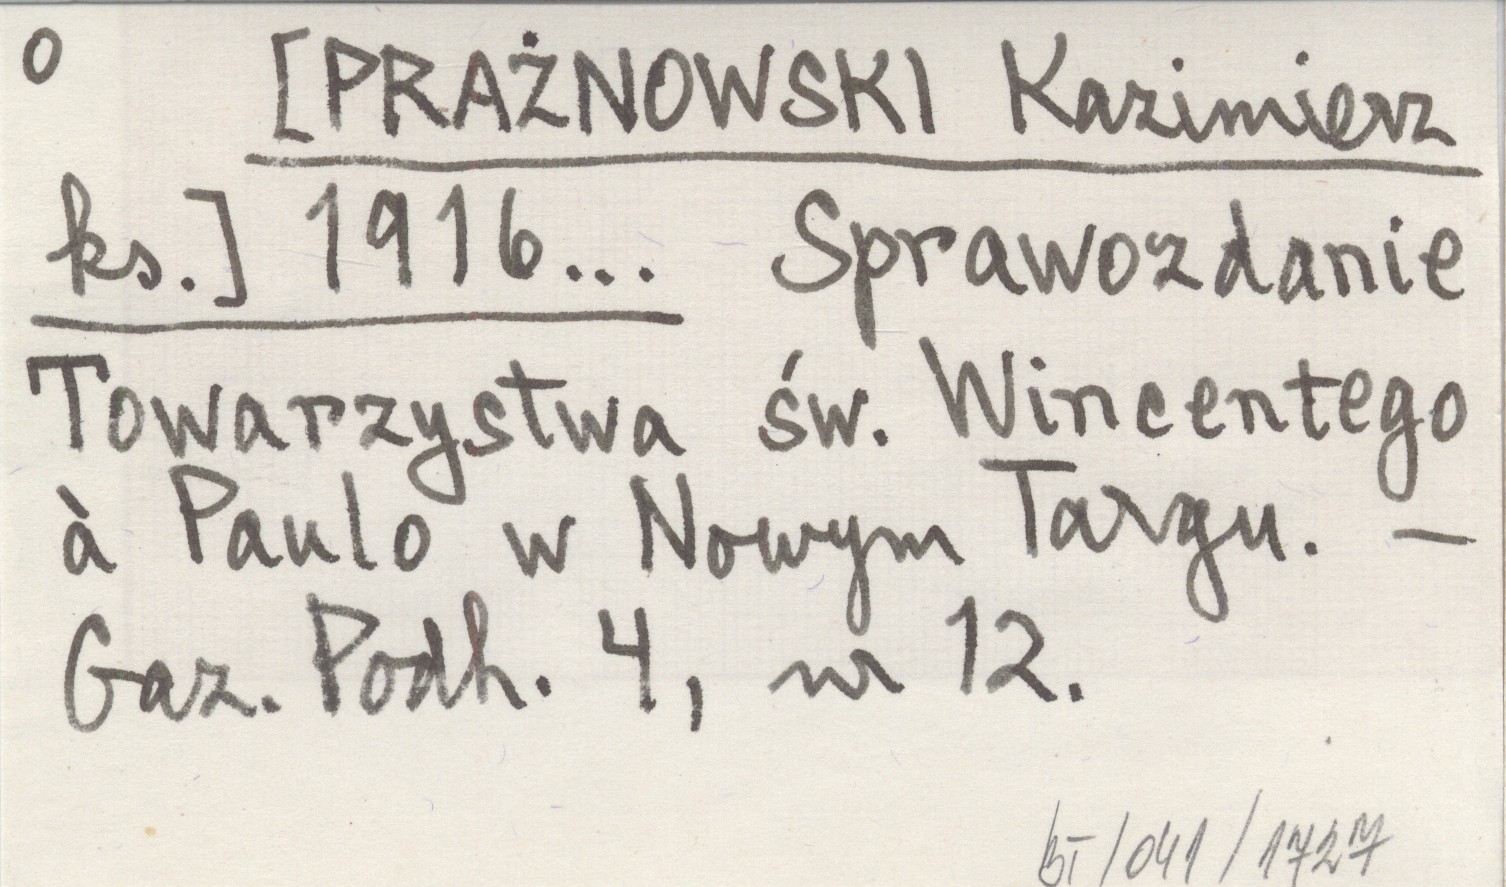 o [PRAŻNOWSKI Kazimierz
ks.] 1916... Sprawozdanie
Towarzystwa św. Wincentego
à Paulo w Nowym Targu. —
Gaz. Podh. 4, nr 12.
BT/041/1727